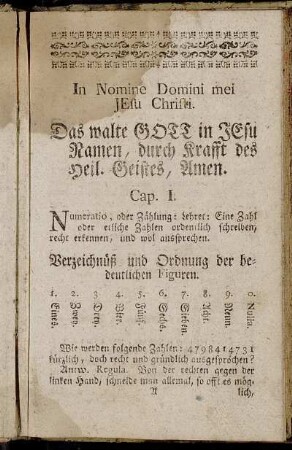 In Nomine Domini mei
JEsu Christi.
Das walte GOTT in JEsu
Namen, durch Krafft des
Heil. Geistes, Amen.
Cap. I.
Numeratio, oder Zählung: Lehret: Eine Zahl
oder etliche Zahlen ordentlich schreiben,
recht erkennen, und wol aussprechen.
Verzeichnüß und Ordnung der be-
deutlichen Figuren.
1. 2. 3. 4. 5. 6. 7. 8. 9. 0.
Eines. Zwey. Drey. Vier. Fünff. Sechs. Sieben. Acht. Neun. Nulla.
Wie werden folgende Zahlen: 4798414731
kürzlich, doch recht und gründlich ausgesprochen?
Antw. Regula. Von der rechten gegen der
linken Hand, schneide man allemal, so offt es mög-
A lich,